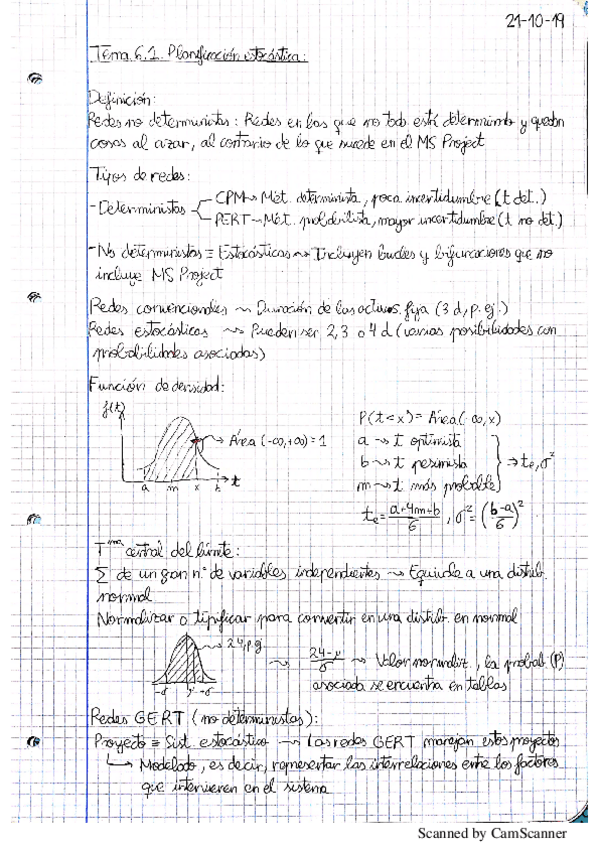 21-10-19
Tema 6.1. Planificación estocástica:
Definición:
Redes no deterministas: Redes en las que no todo está determinado y quedan
cosas al azar, al contrario de lo que sucede en el MS Project
Tipos de redes:
-Deterministas
CPM → Mét. determinista, poca incertidumbre (t det.)
PERT → Mét. probabilista, mayor incertidumbre (t no det.)
-No deterministas ≡ Estocásticas → Incluyen bucles y bifurcaciones que no
incluye MS Project
Redes convencionales → Duración de las activs. fija (3 d, p. ej.)
Redes estocásticas → Pueden ser 2, 3 o 4 d (varias posibilidades con
probabilidades asociadas)
Función de densidad:
f(t)
→ Área (-∞,+∞) = 1
a m x t → t
P(t<x) = Área(-∞,x)
a → t optimista
b → t pesimista
m → t más probable
→ te, σ²
te = (a+4m+b)/6, σ² = ((b-a)/6)²
Tma central del límite:
Σ de un gran n.º de variables independientes → Equivale a una distrib.
normal
Normalizar o tipificar para convertir en una distrib. en normal
→ 24, p. ej.
→ (24-μ)/σ → Valor normaliz., la probab. (P)
asociada se encuentra en tablas
-σ μ -σ
Redes GERT (no deterministas):
Proyecto ≡ Sist. estocástico → Las redes GERT manejan estos proyectos
↳ Modelado, es decir, representar las interrelaciones entre los factores
que intervienen en el sistema
Scanned by CamScanner